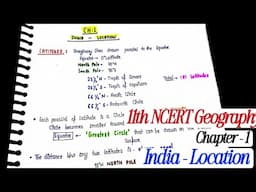 CH:1
INDIA - LOCATION
LATITUDES : Imaginary lines drawn parallel to the Equator
Equator - 0° latitude
North Pole - 90°N
South Pole - 90°S
23½°N - Tropic of Cancer
23½°S - Tropic of Capricorn
66½°N - Arctic Circle
66½°S - Antarctic Circle
Total : 181 latitudes
Each parallel of latitude is a Circle
Circle becomes smaller toward
Equator - "Greatest Circle" that can be drawn on the
Surface
The distance b/w any two latitudes is
NORTH POLE
11th NCERT Geography
Chapter - 1
India - Location